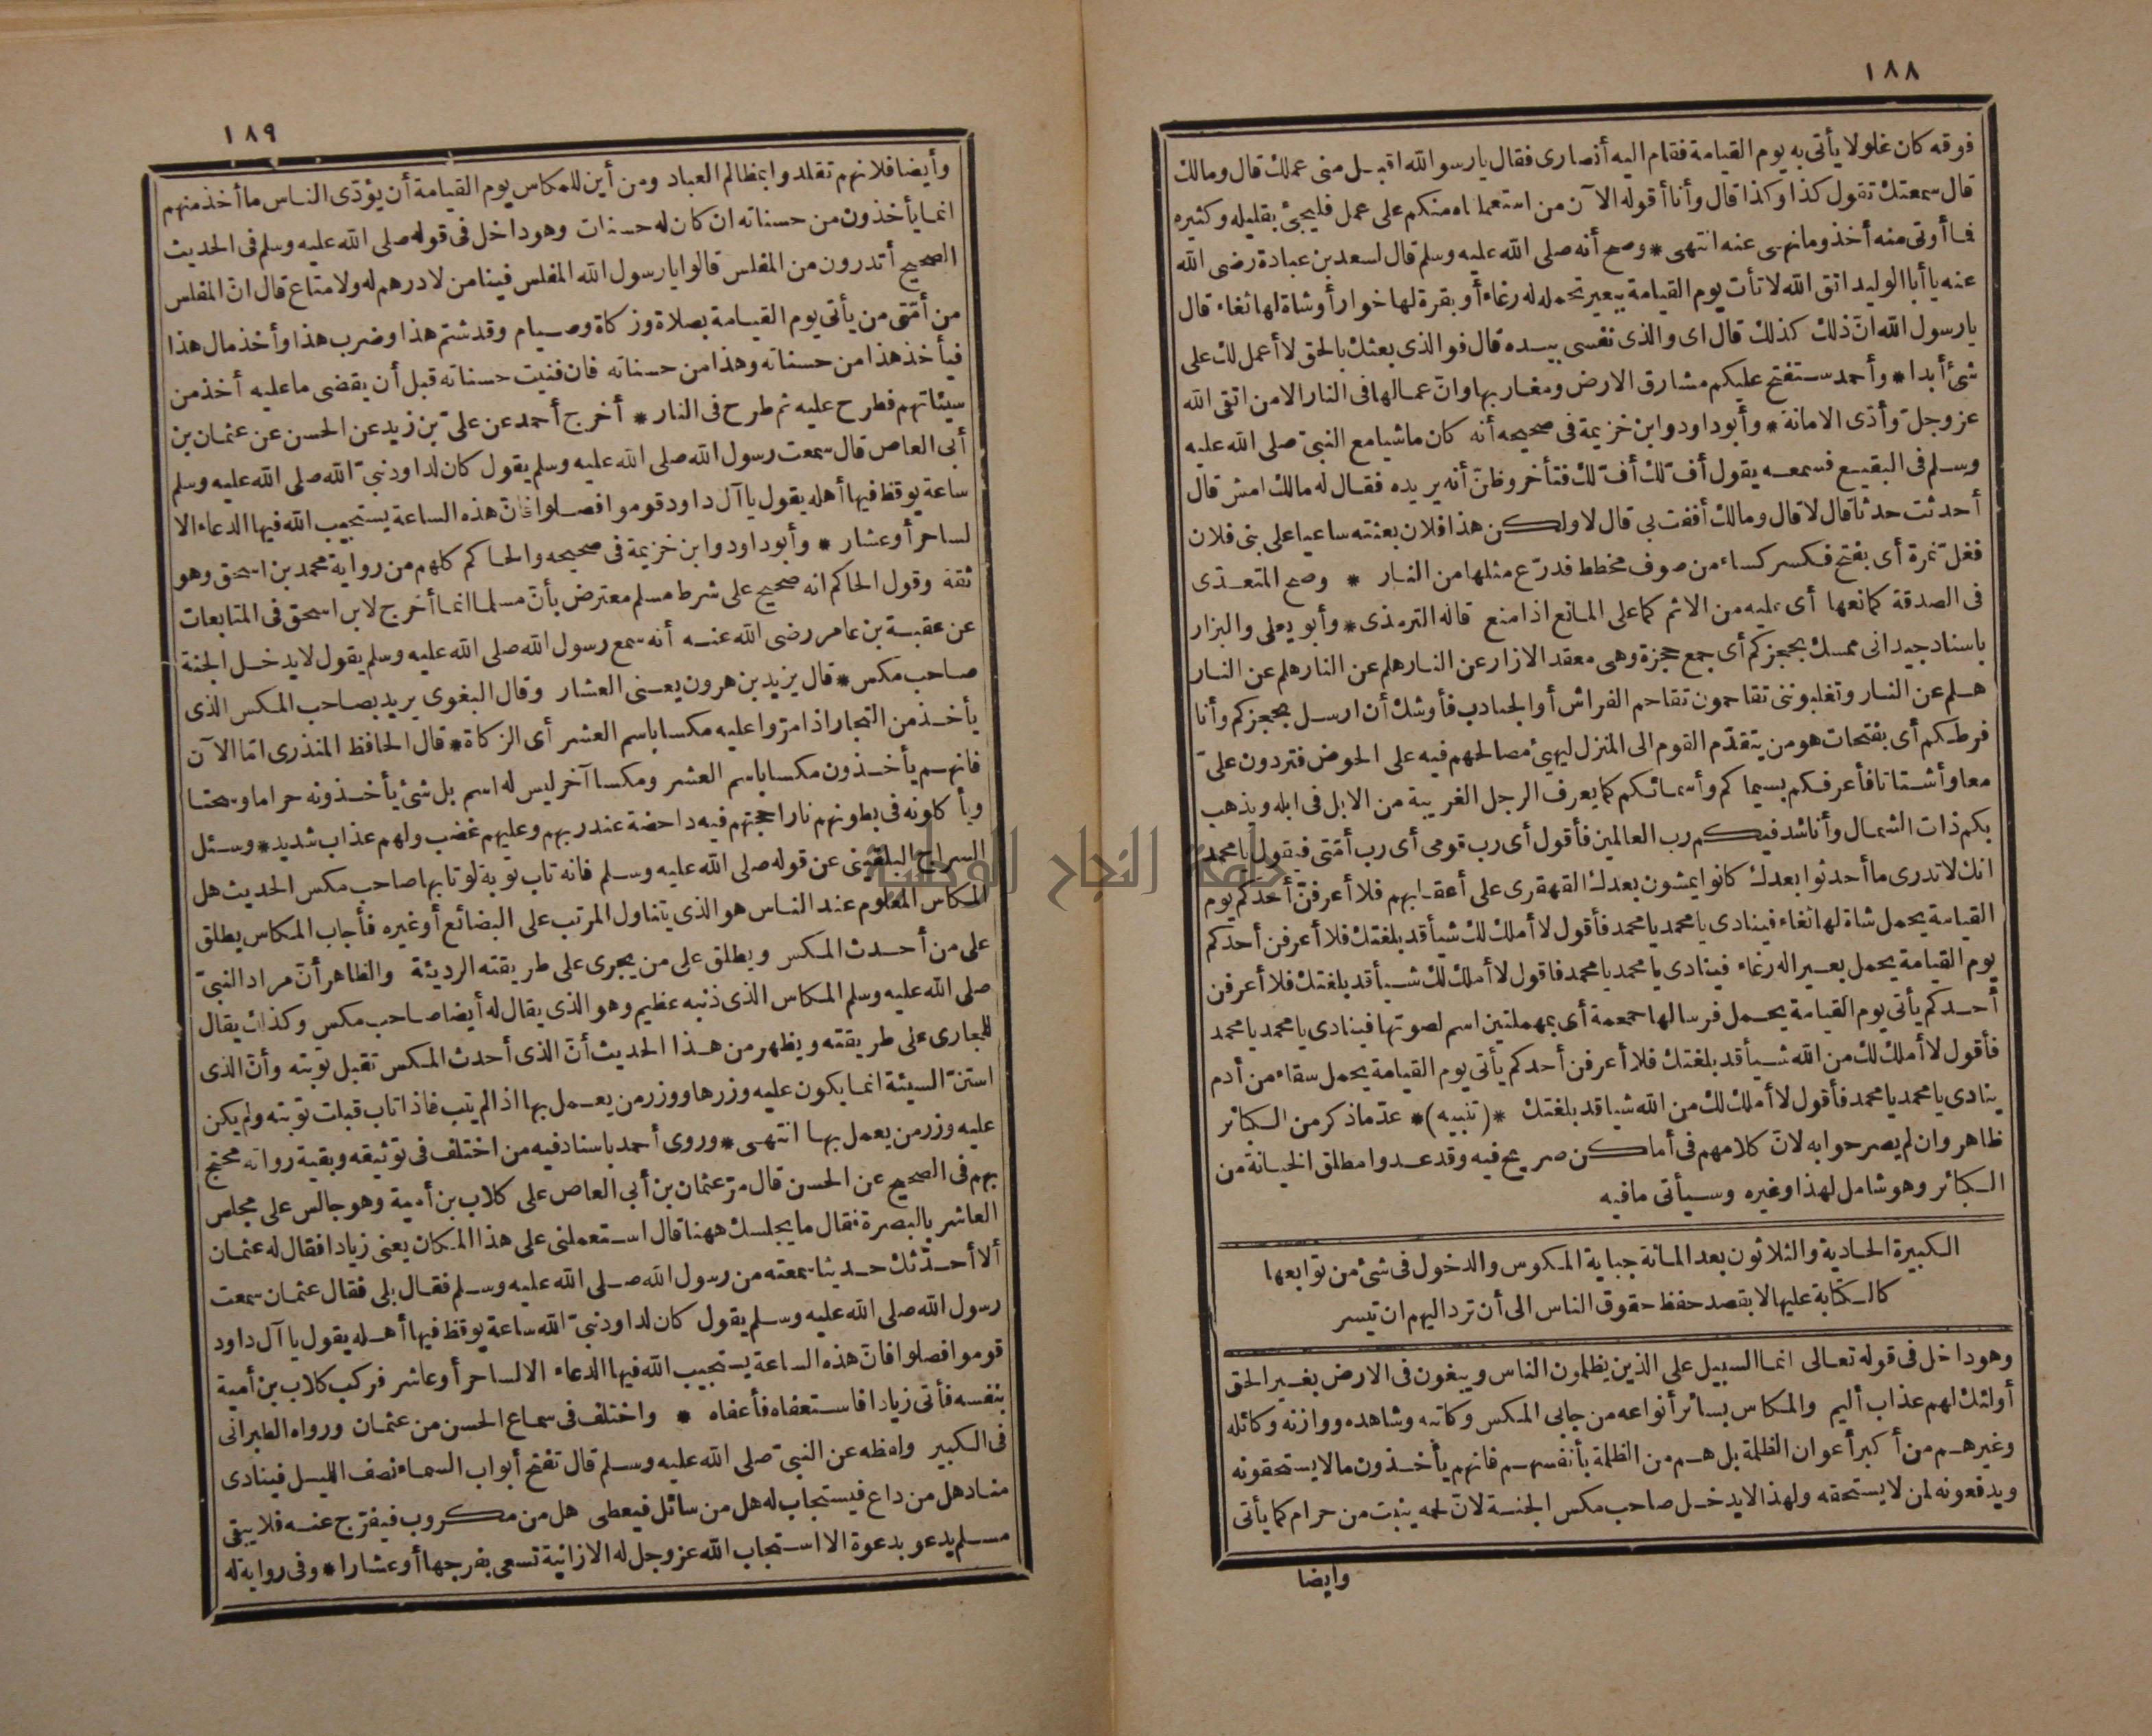 ١٨٨
فوقه كان غلولا يأتى به يوم القيامة فقام اليه أنصارى فقال يا رسول الله اقبل منى عملك قال ومالك
قال سمعتك تقول كذا وكذا قال وأنا أقوله الآن من استعملناه منكم على عمل فليجئ بقليله وكثيره
فما أوتى منه أخذ وما نهى عنه انتهى * وصح أنه صلى الله عليه وسلم قال لسعد بن عبادة رضى الله
عنه يا أبا الوليد اتق الله لا تأت يوم القيامة ببعير تحمله له رغاء أو بقرة لها خوار أو شاة لها ثغاء قال
يا رسول الله انّ ذلك كذلك قال اى والذى نفسى بيده قال فوالذى بعثك بالحق لا أعمل لك على
شئ أبدا * وأحمد ستفتح عليكم مشارق الارض ومغاربها وانّ عمالها فى النار الا من اتقى الله
عز وجلّ وأدّى الامانة * وأبوداود وابن خزيمة فى صحيحه أنه كان ماشيا مع النبىّ صلى الله عليه
وسلم فى البقيع فسمعه يقول أفّ لك أفّ لك فتأخر وظنّ أنه يريده فقال له مالك امش قال
أحدثت حدثا قال لا قال ومالك أففت بى قال لا ولكن هذا فلان بعثته ساعيا على بنى فلان
فغلّ نمرة أى بفتح فكسر كساء من صوف مخطط فدرّع مثلها من النار * وصح المتعدّى
فى الصدقة كمانعها أى عليه من الاثم كما على المانع اذا منع قاله الترمذى * وأبو يعلى والبزار
باسناد جيد انى ممسك بحجزكم أى جمع حجزة وهى معقد الازار عن النار هلم عن النار هلم عن النار
هلم عن النار وتغلبوننى تقاحمون تقاحم الفراش أو الجنادب فأوشك أن ارسل بحجزكم وأنا
فرطكم أى بفتحات هو من يتقدّم القوم الى المنزل ليهيئ مصالحهم فيه على الحوض فتردون علىّ
معا وأشتاتا فأعرفكم بسيماكم وأسمائكم كما يعرف الرجل الغريبة من الابل فى ابله ويذهب
بكم ذات الشمال وأناشد فيكم رب العالمين فأقول أى رب قومى أى رب أمّتى فيقول يا محمد
انك لا تدرى ما أحدثوا بعدك كانوا يمشون بعدك القهقرى على أعقابهم فلا أعرفنّ أحدكم يوم
القيامة يحمل شاة لها ثغاء فينادى يا محمد يا محمد فأقول لا أملك لك شيأ قد بلغتك فلا أعرفن أحدكم
يوم القيامة يحمل بعيرا له رغاء فينادى يا محمد يا محمد فاقول لا أملك لك شيأ قد بلغتك فلا أعرفن
أحدكم يأتى يوم القيامة يحمل فرسا لها حمحمة أى بمهملتين اسم لصوتها فينادى يا محمد يا محمد
فأقول لا أملك لك من الله شيأ قد بلغتك فلا أعرفن أحدكم يأتى يوم القيامة يحمل سقاء من أدم
ينادى يا محمد يا محمد فأقول لا أملك لك من الله شيا قد بلغتك *(تنبيه)* عدّ ما ذكر من الكبائر
ظاهر وان لم يصرحوا به لانّ كلامهم فى أماكن صريح فيه وقد عدوا مطلق الخيانة من
الكبائر وهو شامل لهذا وغيره وسيأتى ما فيه
الكبيرة الحادية والثلاثون بعد المائة جباية المكوس والدخول فى شئ من توابعها
كالكتابة عليها لا بقصد حفظ حقوق الناس الى أن ترد اليهم ان تيسر
وهو داخل فى قوله تعالى انما السبيل على الذين يظلمون الناس ويبغون فى الارض بغير الحق
أولئك لهم عذاب أليم والمكاس بسائر أنواعه من جابى المكس وكاتبه وشاهده ووازنه وكائله
وغيرهم من أكبر أعوان الظلمة بل هم من الظلمة بأنفسهم فانهم يأخذون ما لا يستحقونه
ويدفعونه لمن لا يستحقه ولهذا لا يدخل صاحب مكس الجنة لانّ لحمه ينبت من حرام كما يأتى
وايضا
١٨٩
وأيضا فلانهم تقلدوا بمظالم العباد ومن أين للمكاس يوم القيامة أن يؤدّى الناس ما أخذ منهم
انما يأخذون من حسناته ان كان له حسنات وهو داخل فى قوله صلى الله عليه وسلم فى الحديث
الصحيح أتدرون من المفلس قالوا يا رسول الله المفلس فينا من لا درهم له ولا متاع قال انّ المفلس
من أمّتى من يأتى يوم القيامة بصلاة وزكاة وصيام وقد شتم هذا وضرب هذا وأخذ مال هذا
فيأخذ هذا من حسناته وهذا من حسناته فان فنيت حسناته قبل أن يقضى ما عليه أخذ من
سيئاتهم فطرح عليه ثم طرح فى النار * أخرج أحمد عن علىّ بن زيد عن الحسن عن عثمان بن
أبى العاص قال سمعت رسول الله صلى الله عليه وسلم يقول كان لداود نبىّ الله صلى الله عليه وسلم
ساعة يوقظ فيها أهله يقول يا آل داود قوموا فصلوا فانّ هذه الساعة يستجيب الله فيها الدعاء الا
لساحر أو عشار * وأبوداود وابن خزيمة فى صحيحه والحاكم كلهم من رواية محمد بن اسحق وهو
ثقة وقول الحاكم انه صحيح على شرط مسلم معترض بأنّ مسلما انما أخرج لابن اسحق فى المتابعات
عن عقبة بن عامر رضى الله عنه أنه سمع رسول الله صلى الله عليه وسلم يقول لا يدخل الجنة
صاحب مكس * قال يزيد بن هرون يعنى العشار وقال البغوى يريد بصاحب المكس الذى
يأخذ من التجار اذا مرّوا عليه مكسا باسم العشر أى الزكاة * قال الحافظ المنذرى امّا الآن
فانهم يأخذون مكسا باسم العشر ومكسا آخر ليس له اسم بل شئ يأخذونه حراما وسحتا
ويأكلونه فى بطونهم نارا حجتهم فيه داحضة عند ربهم وعليهم غضب ولهم عذاب شديد * وسئل
السراج البلقينى عن قوله صلى الله عليه وسلم فانه تاب توبة لو تابها صاحب مكس الحديث هل
المكاس المعلوم عند الناس هو الذى يتناول المرتب على البضائع أو غيره فأجاب المكاس يطلق
على من أحدث المكس ويطلق على من يجرى على طريقته الرديئة والظاهر أنّ مراد النبىّ
صلى الله عليه وسلم المكاس الذى ذنبه عظيم وهو الذى يقال له أيضا صاحب مكس وكذلك يقال
للجارى على طريقته ويظهر من هذا الحديث أنّ الذى أحدث المكس تقبل توبته وأنّ الذى
استنّ السيئة انما يكون عليه وزرها ووزر من يعمل بها اذا لم يتب فاذا تاب قبلت توبته ولم يكن
عليه وزر من يعمل بها انتهى * وروى أحمد باسناد فيه من اختلف فى توثيقه وبقية رواته محتج
بهم فى الصحيح عن الحسن قال مرّ عثمان بن أبى العاص على كلاب بن أمية وهو جالس على مجلس
العاشر بالبصرة فقال ما يجلسك ههنا قال استعملنى على هذا المكان يعنى زيادا فقال له عثمان
ألا أحدّثك حديثا سمعته من رسول الله صلى الله عليه وسلم فقال بلى فقال عثمان سمعت
رسول الله صلى الله عليه وسلم يقول كان لداود نبىّ الله ساعة يوقظ فيها أهله يقول يا آل داود
قوموا فصلوا فانّ هذه الساعة يستجيب الله فيها الدعاء الا لساحر أو عاشر فركب كلاب بن أمية
بنفسه فأتى زيادا فاستعفاه فأعفاه * واختلف فى سماع الحسن من عثمان ورواه الطبرانى
فى الكبير ولفظه عن النبىّ صلى الله عليه وسلم قال تفتح أبواب السماء نصف الليل فينادى
مناد هل من داع فيستجاب له هل من سائل فيعطى هل من مكروب فيفرّج عنه فلا يبقى
مسلم يدعو بدعوة الا استجاب الله عز وجل له الا زانية تسعى بفرجها أو عشارا * وفى رواية له
جامعة النجاح الوطنية